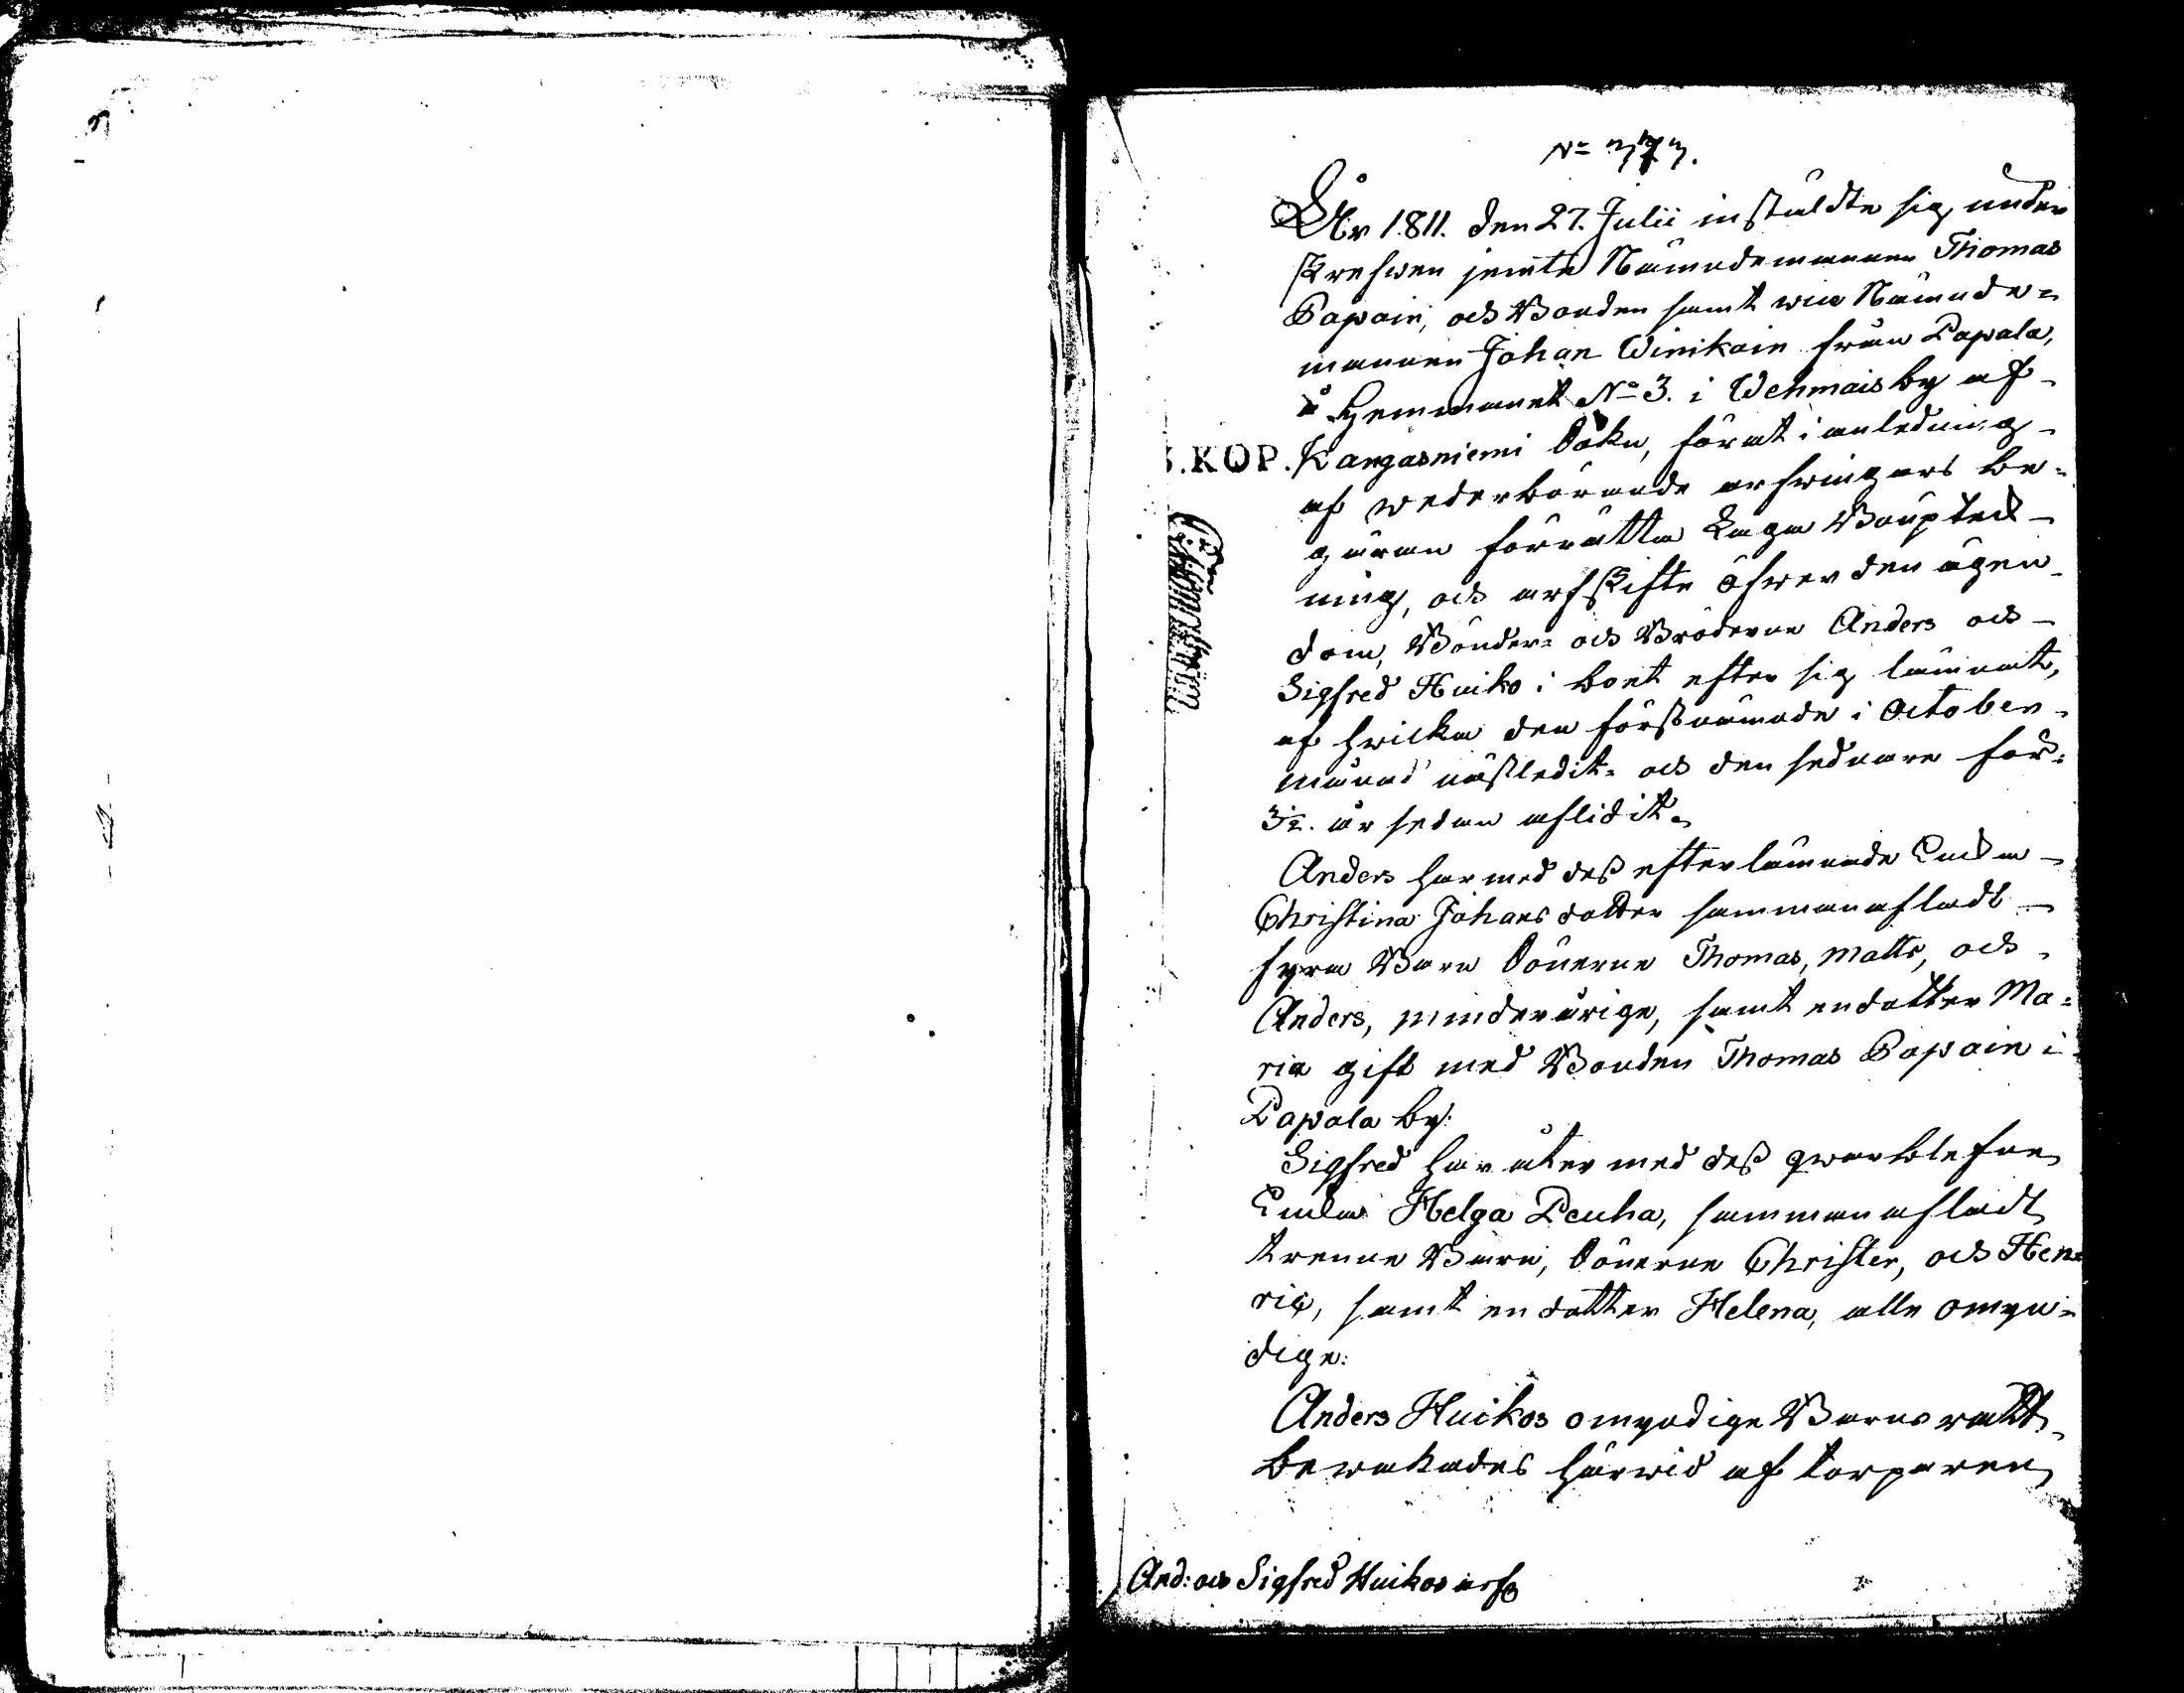 No 373.
År 1811. den 27. Julii instäldte sig under
skrefwen jemte Nämndemannen Thomas
Papain, och Bonden samt wice Nämnde=
mannen Johan Winikain från Papala,
å Hemmanet No 3. i Wehmais by af
S.KOP.
Kangasniemi Sokn, för at i anledning
af wederbörande arfwingars be=
gäran förrätta Laga Boupteck-
ning, och arfskifte öfwer den ägen-
dom, Bönder= och Bröderne Anders och
Sigfred Huiko i boet efter sig lämnat,
af hwilka den förstnämnde i October
månad nästledit= och den sednare för=
3½. år sedan aflidit.
Anders har med dess efterlämnade Enka
Christina Johansdotter sammanafladt
fyra Barn Sönerne Thomas, Matts, och
Anders, minderårige, samt en dotter Ma=
ria gift med Bonden Thomas Papain i
Papala by.
Sigfred har åter med dess qwarblefne
Enka Helga Peuha, sammanafladt
trenne Barn, Sönerne Christer, och Hen=
ric, samt en dotter Helena, alle omyn=
dige.
Anders Huikos omyndige Barns rätt
bewakades härwid af torparen
And: och Sigfred Huikos arfs